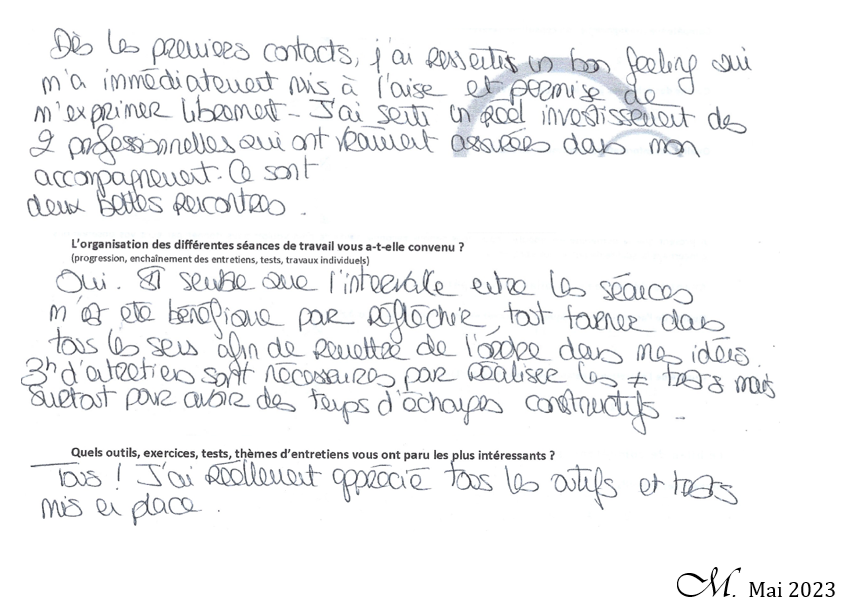 Dès les premiers contacts, j'ai ressentis un bon feeling qui
m'a immédiatement mis à l'aise et permise de
m'exprimer librement - J'ai senti un réel investissement des
2 professionnelles qui ont vraiment assurées dans mon
accompagnement. Ce sont
deux belles rencontres.
L'organisation des différentes séances de travail vous a-t-elle convenu ?
(progression, enchaînement des entretiens, tests, travaux individuels)
Oui. Il semble que l'intervalle entre les séances
m'est été bénéfique pour réfléchir, tout tourner dans
tous les sens afin de remettre de l'ordre dans mes idées.
3h d'entretiens sont nécessaires pour réaliser les ≠ tests mais
surtout pour avoir des temps d'échanges constructifs -
Quels outils, exercices, tests, thèmes d'entretiens vous ont paru les plus intéressants ?
Tous ! J'ai réellement apprécié tous les outils et tests
mis en place.
M. Mai 2023